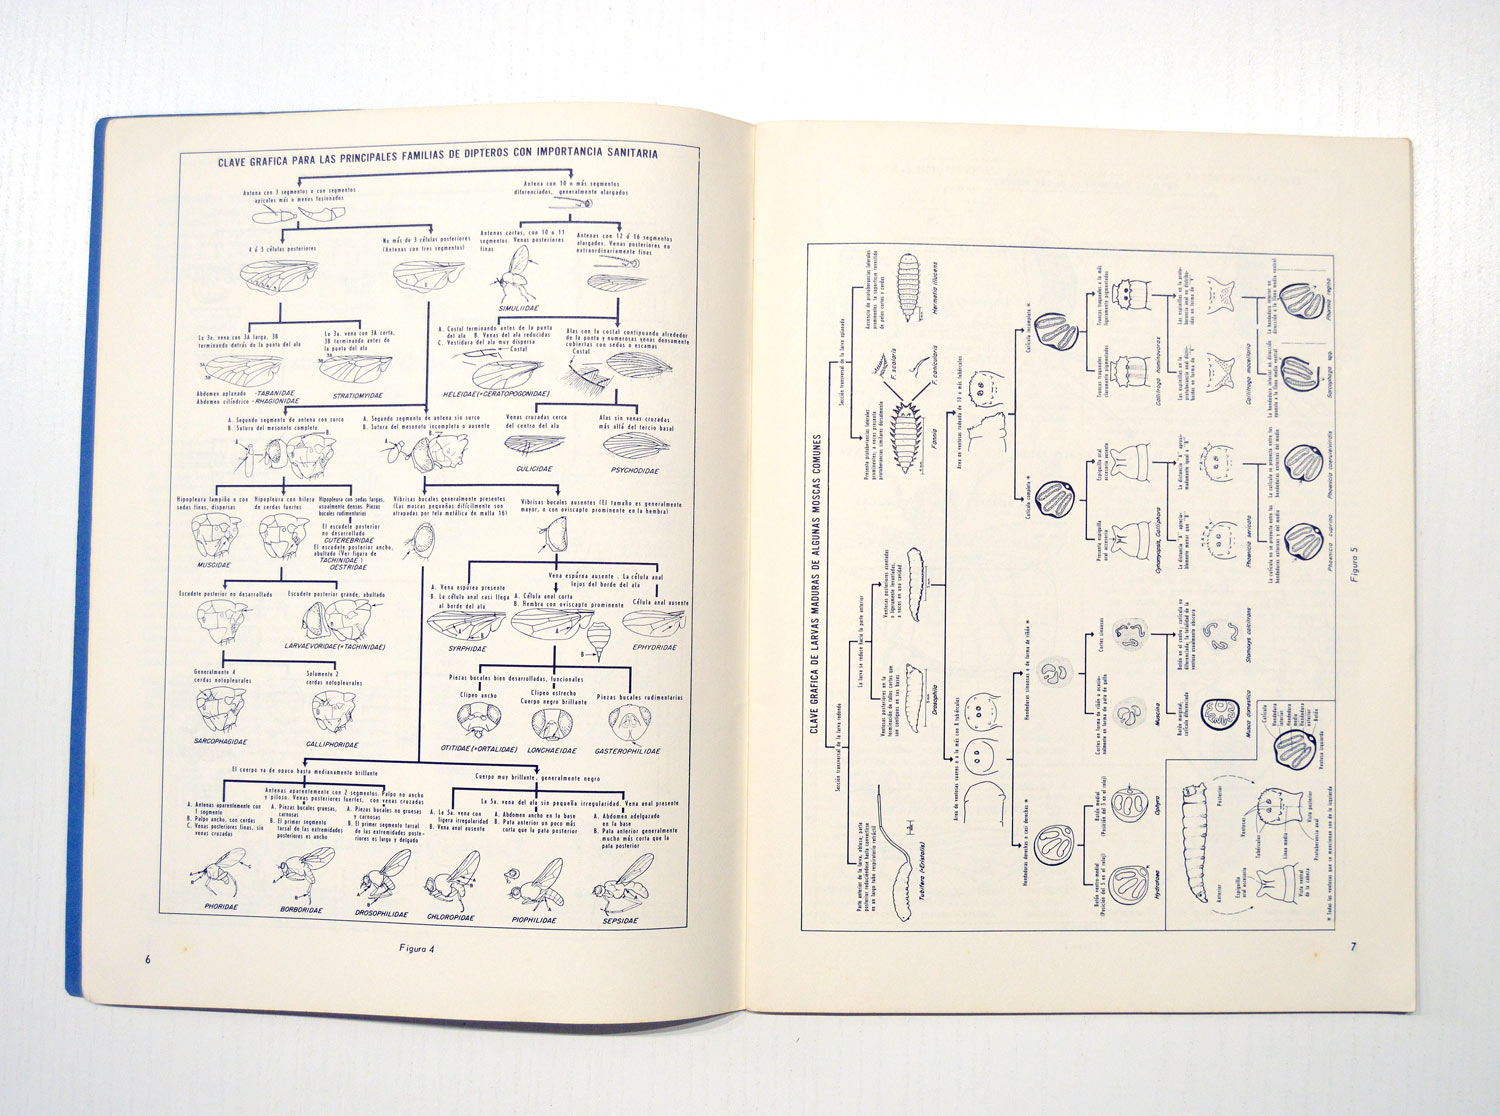 CLAVE GRAFICA PARA LAS PRINCIPALES FAMILIAS DE DIPTEROS CON IMPORTANCIA SANITARIA
Antena con 3 segmentos o con segmentos
apicales más o menos fusionados
Antena con 10 o más segmentos
diferenciados, generalmente alargados
4 ó 5 células posteriores
No más de 3 células posteriores
(Antenas con tres segmentos)
Antenas cortas, con 10 u 11
segmentos. Venas posteriores
finas
SIMULIIDAE
Antenas con 12 ó 16 segmentos
alargados. Venas posteriores no
extraordinariamente finas
La 3a. vena con 3A larga, 3B
terminando detrás de la punta del ala
3A
3B
Abdomen aplanado -TABANIDAE
Abdomen cilíndrico -RHAGIONIDAE
La 3a. vena con 3A corta,
3B terminando antes de
la punta del ala
3A
3B
STRATIOMYIDAE
A. Costal terminando antes de la punta
del ala B. Venas del ala reducidas
C. Vestidura del ala muy dispersa
Costal
HELEIDAE(=CERATOPOGONIDAE)
Alas con la costal continuando alrededor
de la punta y numerosas venas densamente
cubiertas con sedas o escamas
Costal
A. Segundo segmento de antena con surco
B. Sutura del mesonoto completo
A
B
A. Segundo segmento de antena sin surco
B. Sutura del mesonoto incompleta o ausente
B
Venas cruzadas cerca
del centro del ala
CULICIDAE
Alas sin venas cruzadas
más allá del tercio basal
PSYCHODIDAE
Hipopleura lampiña o con
sedas finas, dispersas
MUSCIDAE
Hipopleura con hilera
de cerdas fuertes
Hipopleura con sedas largas,
usualmente densas. Piezas
bucales rudimentarias
El escudete posterior
no desarrollado
CUTEREBRIDAE
El escudete posterior ancho,
abultado (Ver figura de
TACHINIDAE)
OESTRIDAE
Vibrisas bucales generalmente presentes
(Las moscas pequeñas difícilmente son
atrapadas por tela metálica de malla 16)
Vibrisas bucales ausentes (El tamaño es generalmente
mayor, o con oviscapto prominente en la hembra)
Escudete posterior no desarrollado
Escudete posterior grande, abultado
LARVAEVORIDAE(=TACHINIDAE)
A. Vena espúrea presente
B. La célula anal casi llega
al borde del ala
A
B
SYRPHIDAE
Vena espúrea ausente . La célula anal
lejos del borde del ala
A. Célula anal corta
B. Hembra con oviscapto prominente
A
B
Célula anal ausente
EPHYDRIDAE
Generalmente 4
cerdas notopleurales
SARCOPHAGIDAE
Solamente 2
cerdas notopleurales
CALLIPHORIDAE
Piezas bucales bien desarrolladas, funcionales
Clipeo ancho
OTITIDAE(=ORTALIDAE)
Clipeo estrecho
Cuerpo negro brillante
LONCHAEIDAE
Piezas bucales rudimentarias
GASTEROPHILIDAE
El cuerpo va de opaco hasta medianamente brillante
Cuerpo muy brillante, generalmente negro
Antenas aparentemente con 2 segmentos. Palpo no ancho
y piloso. Venas posteriores fuertes, con venas cruzadas
La 5a. vena del ala sin pequeña irregularidad. Vena anal presente
A. Antenas aparentemente con
1 segmento
B. Palpo ancho, con cerdas
C. Venas posteriores finas, sin
venas cruzadas
PHORIDAE
A. Piezas bucales gruesas,
carnosas
B. El primer segmento
tarsal de las extremidades
posteriores es ancho
BORBORIDAE
A. Piezas bucales no gruesas
y carnosas
B. El primer segmento tarsal
de las extremidades poste-
riores es largo y delgado
DROSOPHILIDAE
A. La 5a. vena con
ligera irregularidad
B. Vena anal ausente
CHLOROPIDAE
A. Abdomen ancho en la base
B. Pata anterior un poco más
corta que la pata posterior
PIOPHILIDAE
A. Abdomen adelgazado
en la base
B. Pata anterior generalmente
mucho más corta que la
pata posterior
SEPSIDAE
Figura 4
6
CLAVE GRAFICA DE LARVAS MADURAS DE ALGUNAS MOSCAS COMUNES
Sección transversal de la larva redonda
Sección transversal de la larva aplanada
La larva se reduce hacia la parte anterior
Tubifera (=Eristalis)
Ventosas posteriores en la
terminación de tallos cortos que
son contiguos en sus bases
Drosophila
Ventosas posteriores asentadas
o ligeramente levantadas,
a veces en una cavidad
Presenta protuberancias laterales
prominentes; a veces presenta
protuberancias similares dorsalmente
F. scalaris
F. canicularis
Fannia
Ausencia de protuberancias laterales
prominentes; la superficie revestida
de pelos cortos y cerdas
Hermetia illucens
Area de ventosas suaves o a lo más con 8 tubérculos
Area de ventosas rodeada de 10 o más tubérculos
Hendeduras derechas o casi derechas *
Hendeduras sinuosas o de forma de riñón *
Cutícula completa *
Cutícula incompleta *
Botón ventro-medial
(Posición del 5 en el reloj)
Hydrotaea
Botón medial
(Posición del 3 en el reloj)
Ophyra
Muscina
Cortes sinuosos
Botón marginal,
cutícula diferenciada
Musca domestica
Stomoxys calcitrans
Presenta espiguilla
oral accesoria
Cynomyopsis, Calliphora
Espiguilla oral
accesoria ausente
Phaenicia sericata
Phaenicia cuprina
Phaenicia coeruleiviridis
Troncos traqueales
claramente pigmentados
Callitroga hominivorax
Troncos traqueales a lo más
ligeramente pigmentados
Callitroga macellaria
Sarcophaga spp.
Phormia regina
Anterior
Posterior
Ventosas
Tubérculos
Línea media
Espiguilla
oral accesoria
Vista ventral
de la cabeza
Vista posterior
Protuberancia anal
Cutícula
Hendedura
interior
Hendedura
media
Hendedura
exterior
Botón
Ventosa izquierda
* Todas las ventosas que se muestran son de la izquierda
Figura 5
7